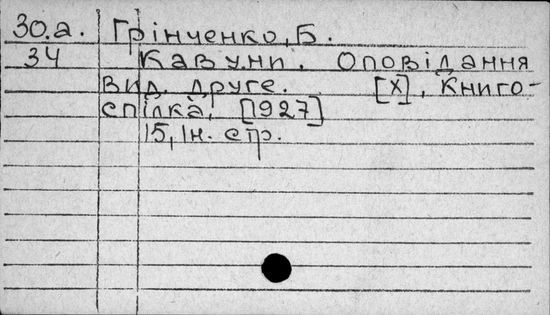 30.а. Грінченко, Б.
34 Кавуни. Оповідання
Вид. друге. [Х], Книго-
спілка, [1927]
15, Ін. стр.